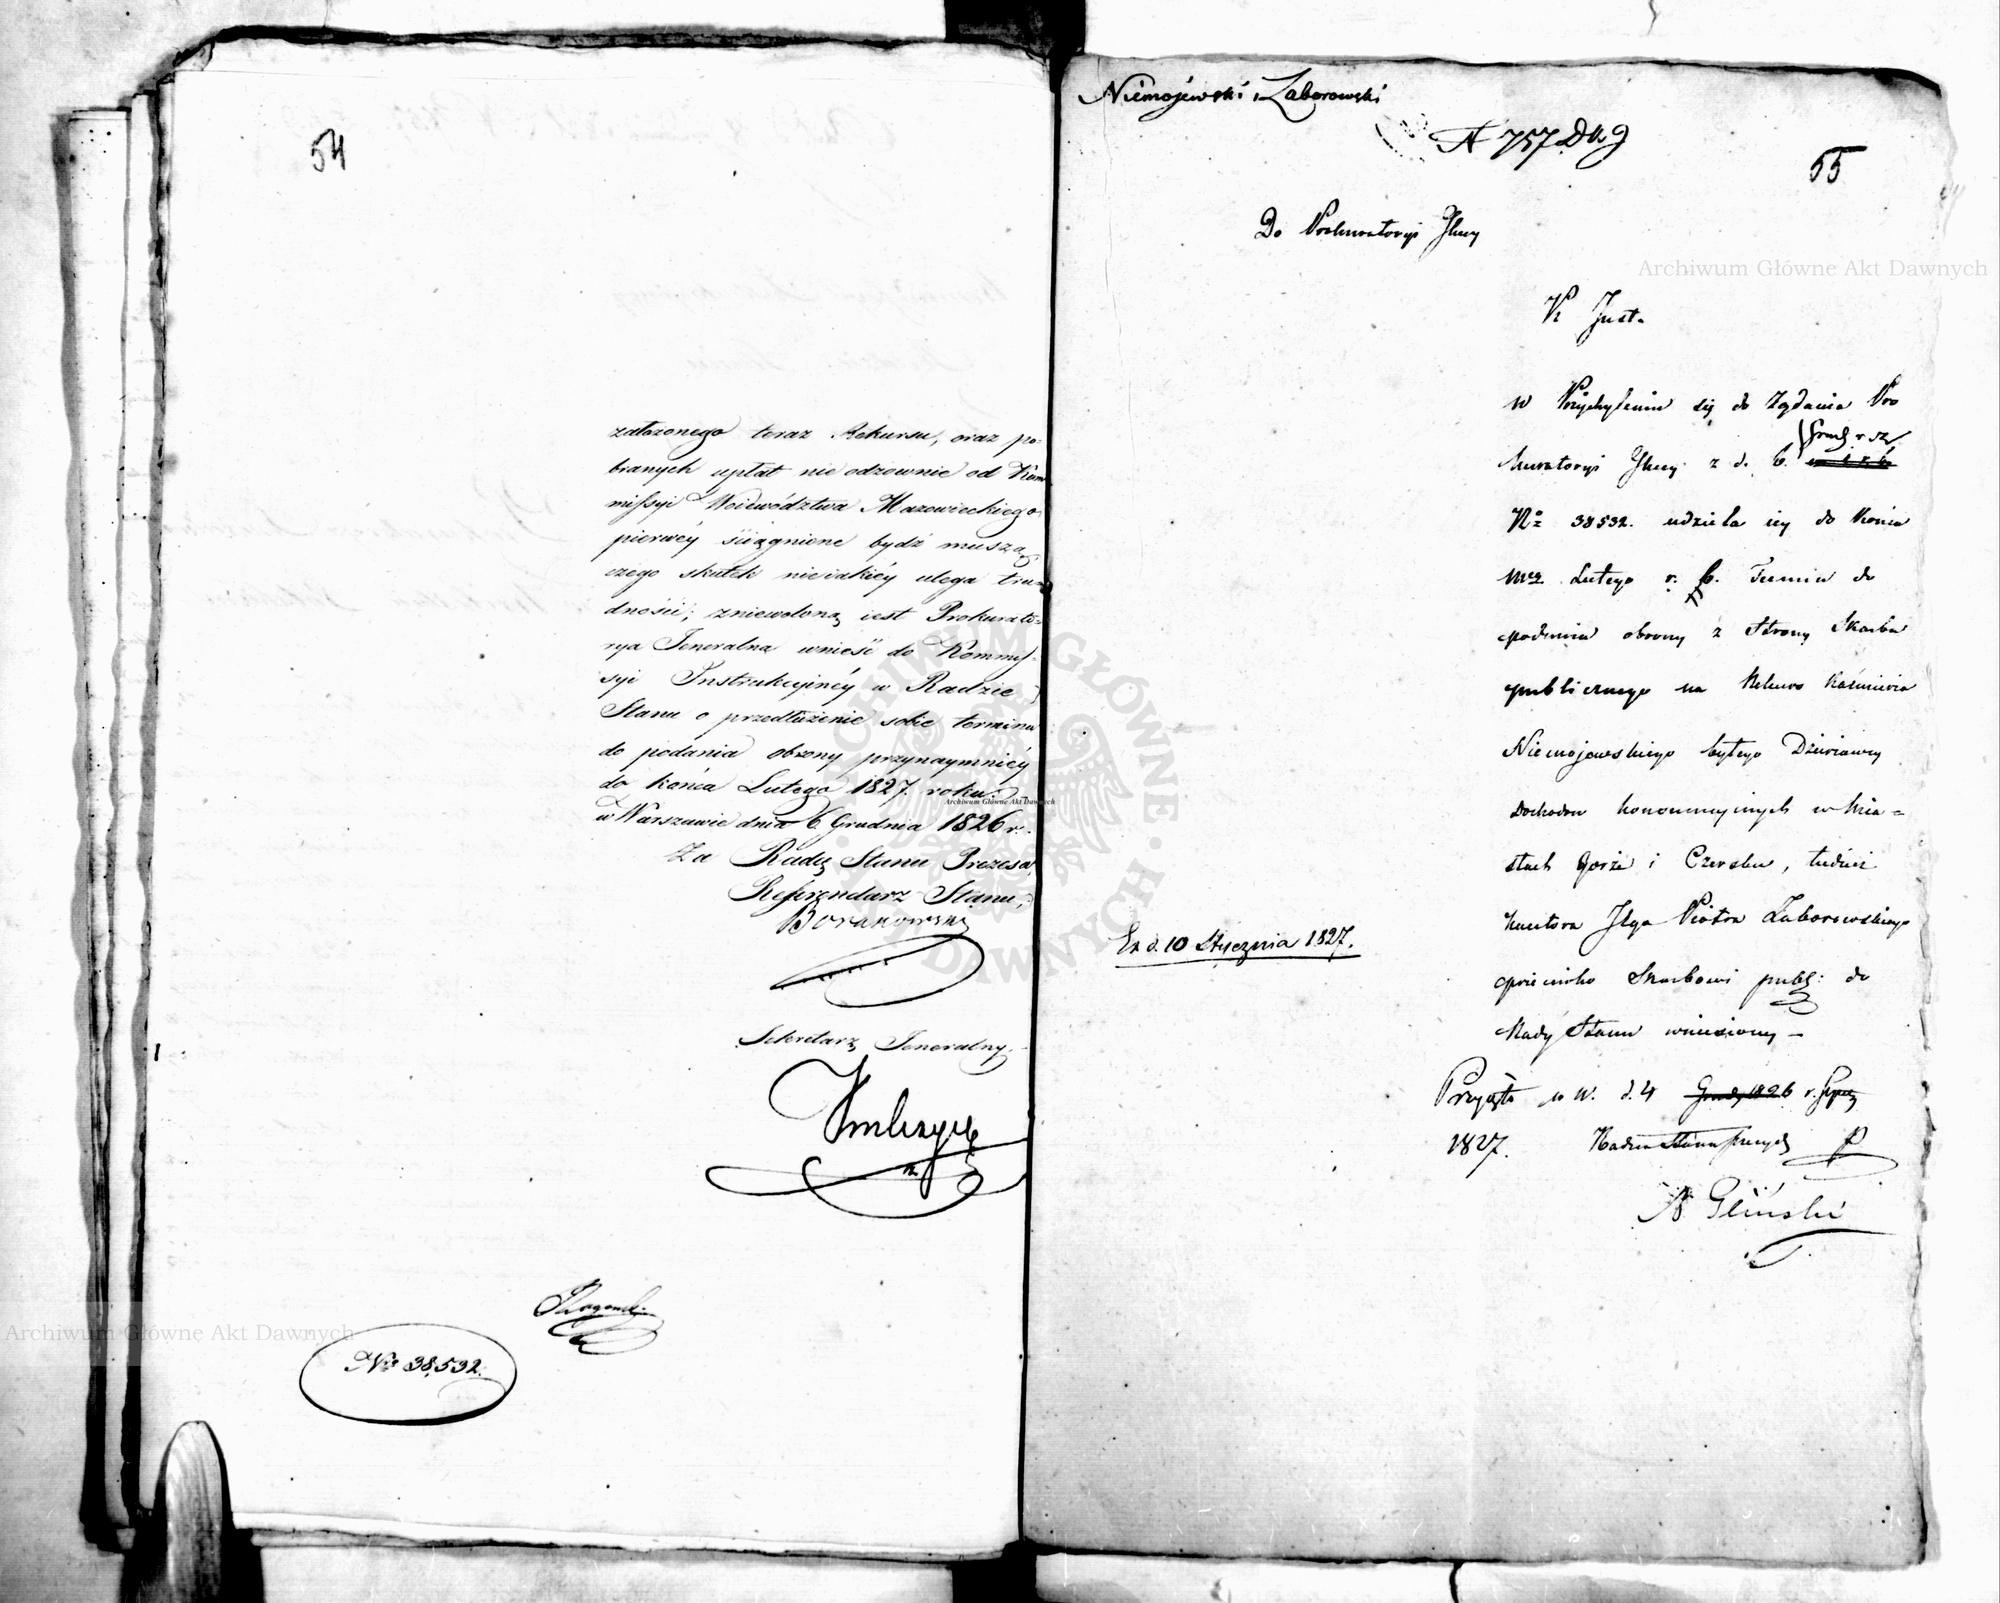 54
założonego teraz Rekursu, oraz po=
branych upłat nieodzownie od Kom
missyi Woiewództwa Mazowieckiego
pierwéy ściągnione bydź muszą
czego skutek nieiakiéy ulega tru=
dności; zniewoloną iest Prokurato=
rya Jeneralna wnieść do Kommis=
syi Instrukcyinéy w Radzie
Stanu o przedłużenie sobie terminu
do podania obrony przynaymniéy
do końca Lutego 1827. roku.
w Warszawie dnia 6 Grudnia 1826 r.
Za Radcę Stanu Prezesa
Referendarz Stanu,
Sekretarz Jeneralny.
No 38,532.
Niemojewski i Zaborowski
N 757
55
Do Prokuratoryi Jlney
K Inst.
W Przychyleniu się do Żądania Pro
kuratoryi Jlney z d. 6.
No 38532. udziela iey do Końca
Mca Lutego r. b. Termin do
podania obrony z Strony Skarbu
publicznego na Rekurs Kazimierza
Niemojewskiego byłego Dzierżawcy
Dochodów konsumcyinych w Mia=
stach Górze i Czersku, tudzież
Kantora Jego Piotra Zaborowskiego
przeciwko Skarbowi publ: do
Rady Stanu wniesiony –
Ex d. 10 Stycznia 1827.
Przyięto d. 4 Grud. 1826 r.
1827. Radca Stanu
Gliński
Archiwum Główne Akt Dawnych
Archiwum Główne Akt Dawnych
Archiwum Główne Akt Dawnych
ARCHIWUM GŁÓWNE AKT DAWNYCH